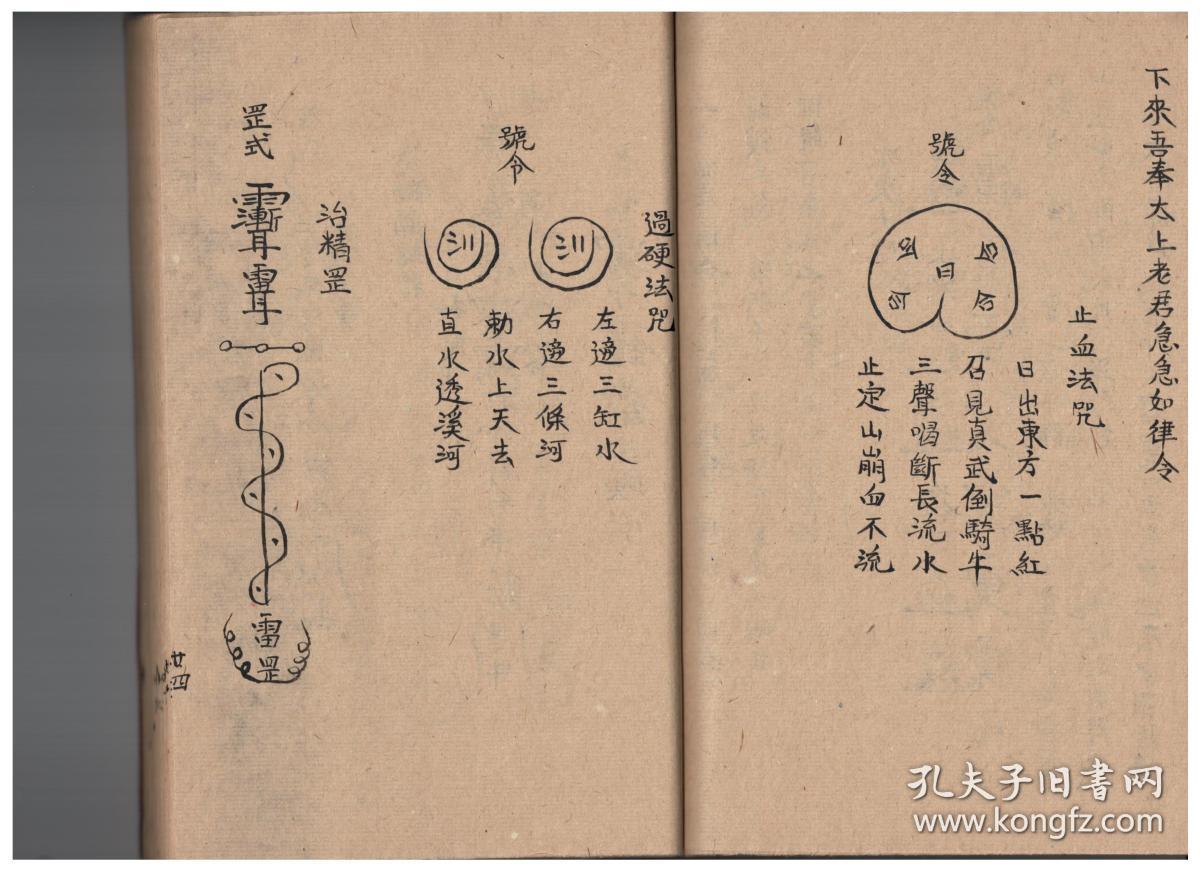 下來吾奉太上老君急急如律令
止血法咒
日出東方一點紅
召見真武倒騎牛
三聲喝斷長流水
止定山崩血不流
號令
日
過硬法咒
左邊三缸水
右邊三條河
勅水上天去
直水透溪河
號令
治精罡
罡式
雷罡
廿四
孔夫子旧书网
www.kongfz.com